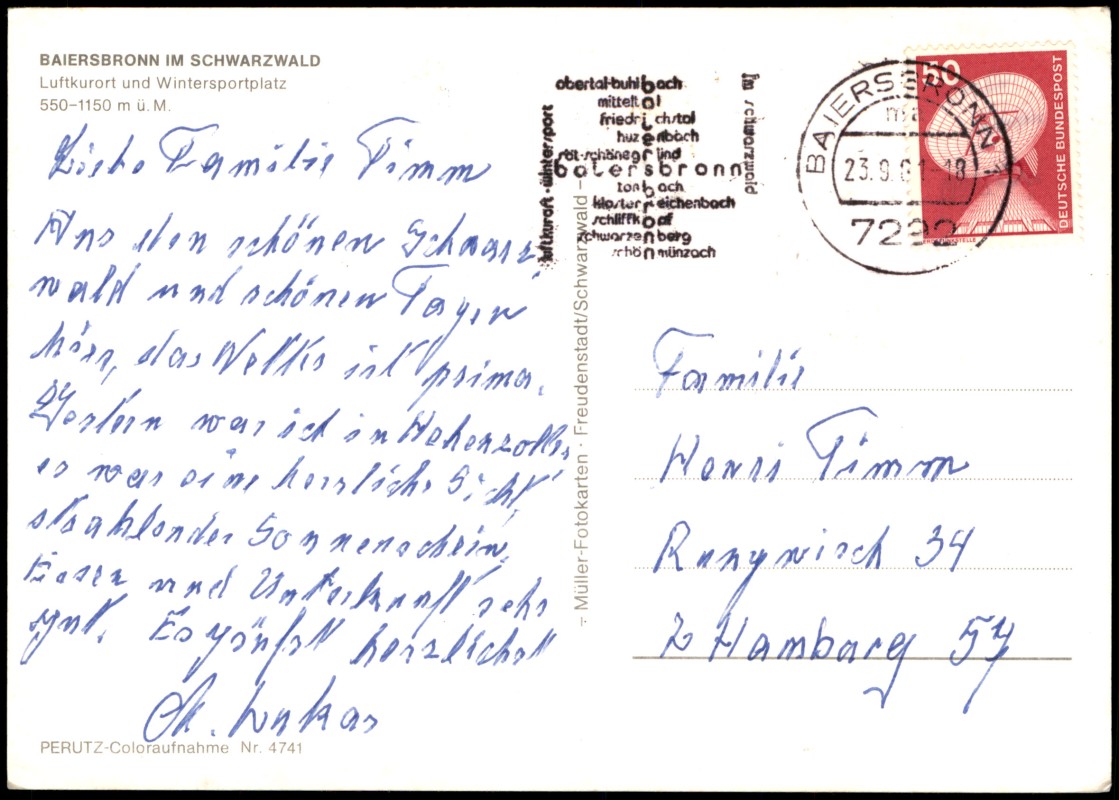 BAIERSBRONN IM SCHWARZWALD
Luftkurort und Wintersportplatz
550–1150 m ü. M.
Liebe Familie Timm
Aus den schönen Schwarz-
wald und schönen Tagen
hier, das Wetter ist prima.
Gestern war ich in Hohenzollern
es war eine herrliche Sicht,
strahlender Sonnenschein,
Essen und Unterkunft sehr
gut. Es grüßt herzlichst
Lukas
PERUTZ-Coloraufnahme Nr. 4741
– Müller-Fotokarten · Freudenstadt/Schwarzwald –
luftkurort · wintersport
obertal-buhlbach
mitteltal
friedrichstal
huzenbach
röt-schönegründ
baiersbronn
tonbach
klosterreichenbach
schliffkopf
schwarzenberg
schönmünzach
im schwarzwald
BAIERSBRONN 1
23.9.81-18
7292
50
DEUTSCHE BUNDESPOST
Familie
Henri Timm
Rungwisch 34
2 Hamburg 54